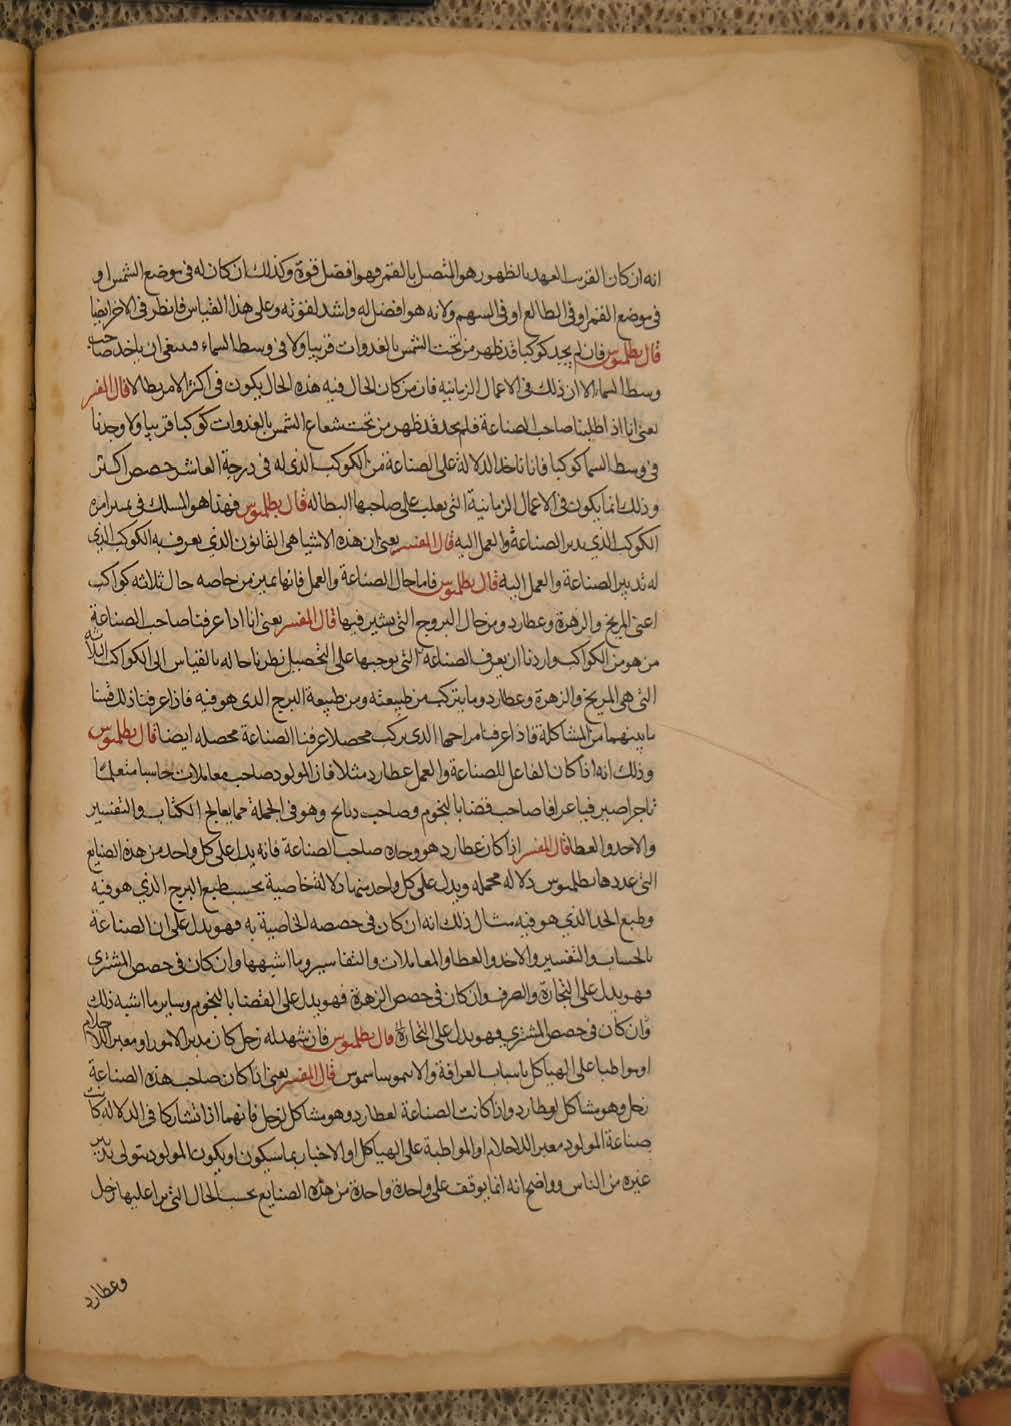 انه ان كان القريب العهد بالظهور هو المتصل بالقمر فهو افضل قوة وكذلك ان كان له فى موضع الشمس او
فى موضع القمر او فى الطالع او فى السهم ولانه هو افضل له واشد لقوته وعلى هذا القياس فانظر فى الاخر ايضا
قال بطلميوس فان لم يجد كوكبا قد ظهر من تحت الشمس بالغدوات قريبا ولا فى وسط السماء فينبغى ان ياخذ صاحب
وسط السماء الا ان ذلك فى الاعمال الزمانيه فان من كان الحال فيه هذه الحال يكون فى اكثر الامر بطالا قال المفسر
يعنى انا اذا طلبنا صاحب الصناعة فلم نجد قد ظهر من تحت شعاع الشمس بالغدوات كوكبا قريبا ولا وجدنا
فى وسط السما كوكبا فانا ناخذ الدلالة على الصناعة من الكوكب الذى له فى درجة العاشر حصص اكثر
وذلك انما يكون فى الاعمال الزمانية التى يغلب على صاحبها البطاله قال بطلميوس فهذا هو المسلك فى
الكوكب الذى يدبر الصناعة والعمل اليه قال المفسر يعنى ان هذه الاشيا هى القانون الذى يعرف به الكوكب الذى
له تدبير الصناعة والعمل اليه قال بطلميوس فاما حال الصناعة والعمل فانها تميز من خاصه حال ثلاثه كواكب
اعنى المريخ والزهرة وعطارد ومن حال البروج التى يسير فيها قال المفسر يعنى انا اذا عرفنا صاحب الصناعة
من هو من الكواكب واردنا ان يعرف الصناعة التى يوجبها على التحصيل نظرنا حاله بالقياس الى الكواكب الثلاثه
التى هى المريخ والزهرة وعطارد وما يتركب من طبيعته ومن طبيعة البرج الذى هو فيه فاذا عرفنا ذلك قسنا
ما بينهما من المشاكلة فاذا عرفنا مزاجها الذى يركب محصلا عرفنا الصناعة محصله ايضا قال بطلميوس
وذلك انه اذا كان الفاعل للصناعة والعمل عطارد مثلا فان المولود صاحب معاملات حاسبا متعلما
تاجرا صيرفيا عرافا صاحب قضايا بالنجوم وصاحب دبائح وهو فى الجملة مما يعالج الكتاب والتفسير
والاخذ والعطا قال المفسر اذا كان عطارد هو وحده صاحب الصناعة فانه يدل على كل واحد من هذه الصنايع
التى عددها بطلميوس دلاله مجمله ويدل على كل واحد منها دلالة خاصية بحسب طبع البرج الذى هو فيه
وطبع الحد الذى هو فيه مثال ذلك انه ان كان فى حصصه الخاصية به فهو يدل على ان الصناعة
بالحساب والتفسير والاخذ والعطا والمعاملات والتفاسير وما اشبهها وان كان فى حصص المشترى
فهو يدل على التجارة والصرف وان كان فى حصص الزهرة فهو يدل على القضايا بالنجوم وساير ما اشبه ذلك
وان كان فى حصص المشترى فهو يدل على التجارة قال بطلميوس فان شهد له زحل كان مدبر الامور او معبر الاحلام
او مواظبا على الهياكل باسباب العرافة قال المفسر يعنى اذا كان صاحب هذه الصناعة
زحل وهو مشاكل لعطارد واذا كانت الصناعة لعطارد وهو مشاكل لزحل فانهما اذا تشاركا فى الدلاله كانت
صناعة المولود معبر الاحلام او المواظبة على الهياكل او الاخبار بما سيكون او يكون المولود يتولى تدبير
غيره من الناس وواضح انه انما يوقف على واحدة واحدة من هذه الصنايع بحسب الحال التى يرا عليها زحل
وعطارد